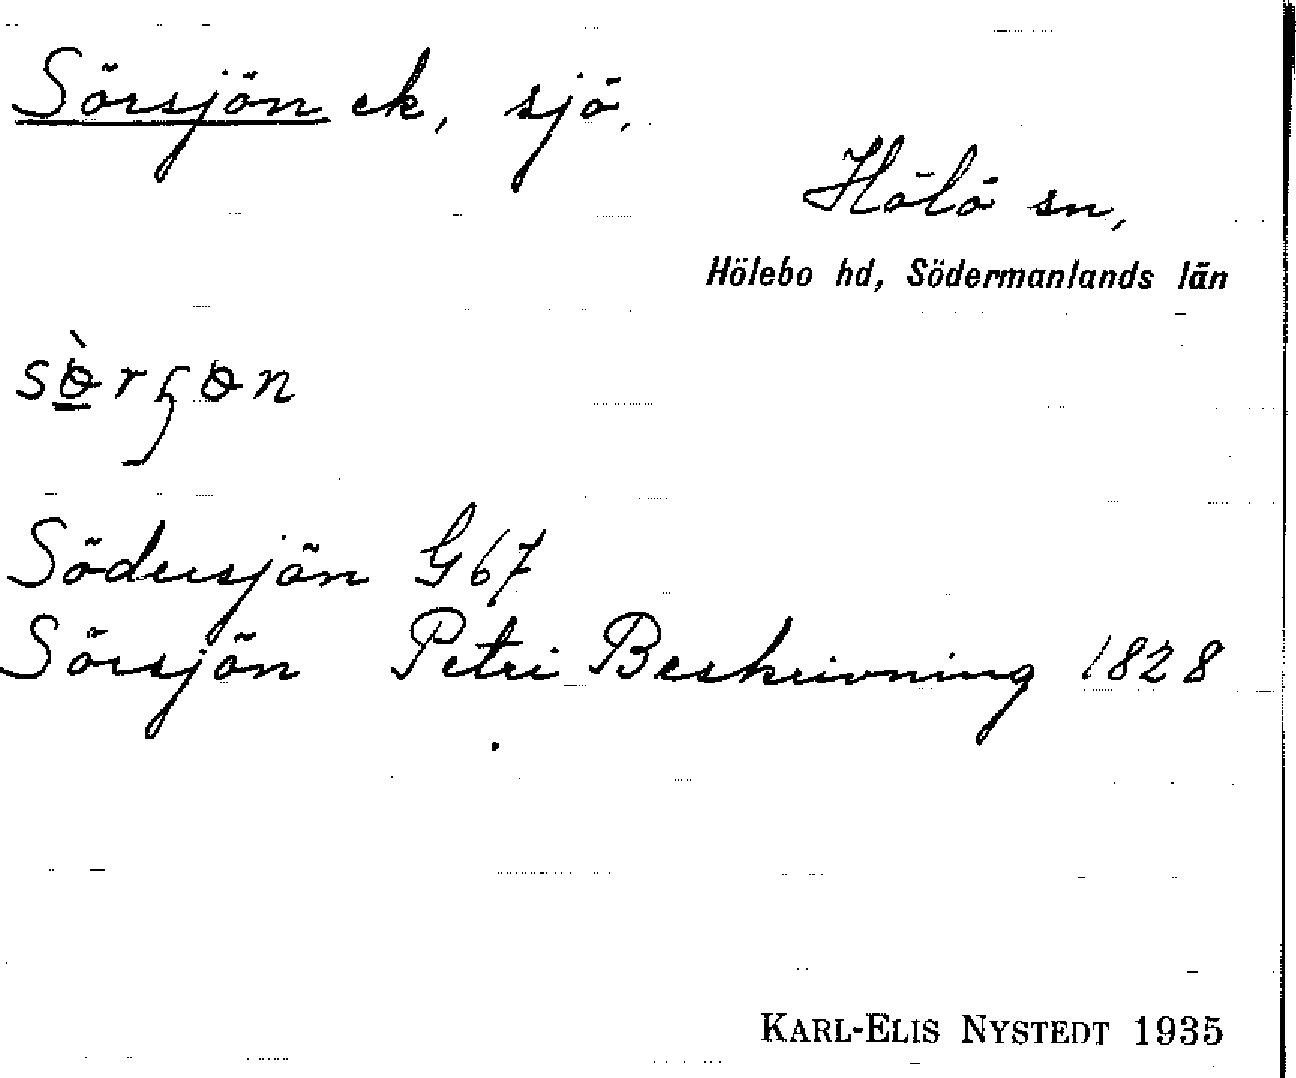 Sörsjön ek, sjö.
Hölö sn,
Hölebo hd, Södermanlands län
Södersjön G67
Sörsjön Petri Beskrivning 1828
KARL-ELIS NYSTEDT 1935